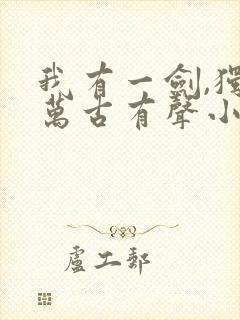 我有一劍,獨
萬古有聲小
盧工郵